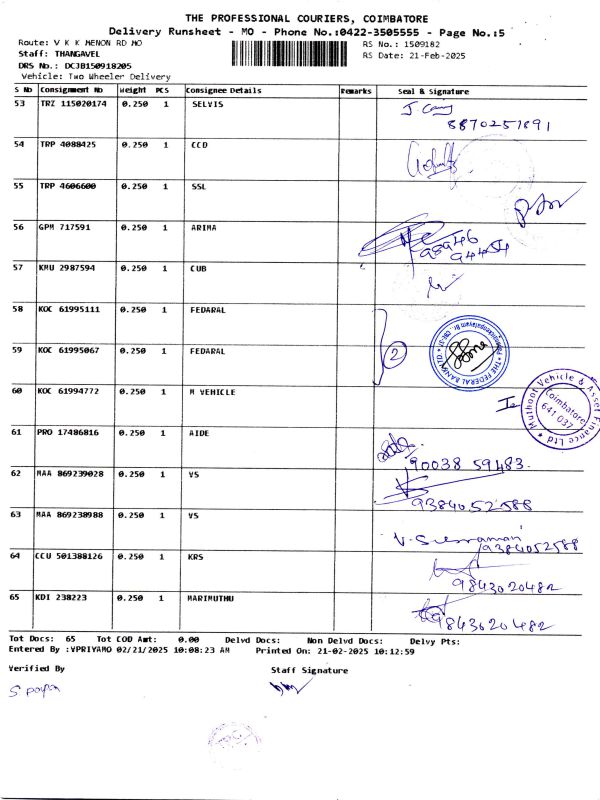 THE PROFESSIONAL COURIERS, COIMBATORE
Delivery Runsheet - MO - Phone No.:0422-3505555 - Page No.:5
Route: V K K MENON RD MO RS No.: 1509182
Staff: THANGAVEL RS Date: 21-Feb-2025
DRS No.: DCJB150918205
Vehicle: Two Wheeler Delivery
S No Consignment No Weight PCS Consignee Details Remarks Seal & Signature
53 TRZ 115020174 0.250 1 SELVIS
8870257891
54 TRP 4088425 0.250 1 CCD
55 TRP 4606600 0.250 1 SSL
56 GPM 717591 0.250 1 ARIMA
98946
94454
57 KMU 2987594 0.250 1 CUB
58 KOC 61995111 0.250 1 FEDARAL
2
THE FEDERAL BANK LTD.
59 KOC 61995067 0.250 1 FEDARAL
60 KOC 61994772 0.250 1 M VEHICLE
Muthoot Vehicle & Asset Finance Ltd
Coimbatore
641 037
61 PRO 17486816 0.250 1 AIDE
90038 59483
62 MAA 869239028 0.250 1 VS
9384052588
63 MAA 869238988 0.250 1 VS
9384052588
64 CCU 501388126 0.250 1 KRS
9843020482
65 KDI 238223 0.250 1 MARIMUTHU
9843020482
Tot Docs: 65 Tot COD Amt: 0.00 Delvd Docs: Non Delvd Docs: Delvy Pts:
Entered By :VPRIYAMO 02/21/2025 10:08:23 AM Printed On: 21-02-2025 10:12:59
Verified By Staff Signature